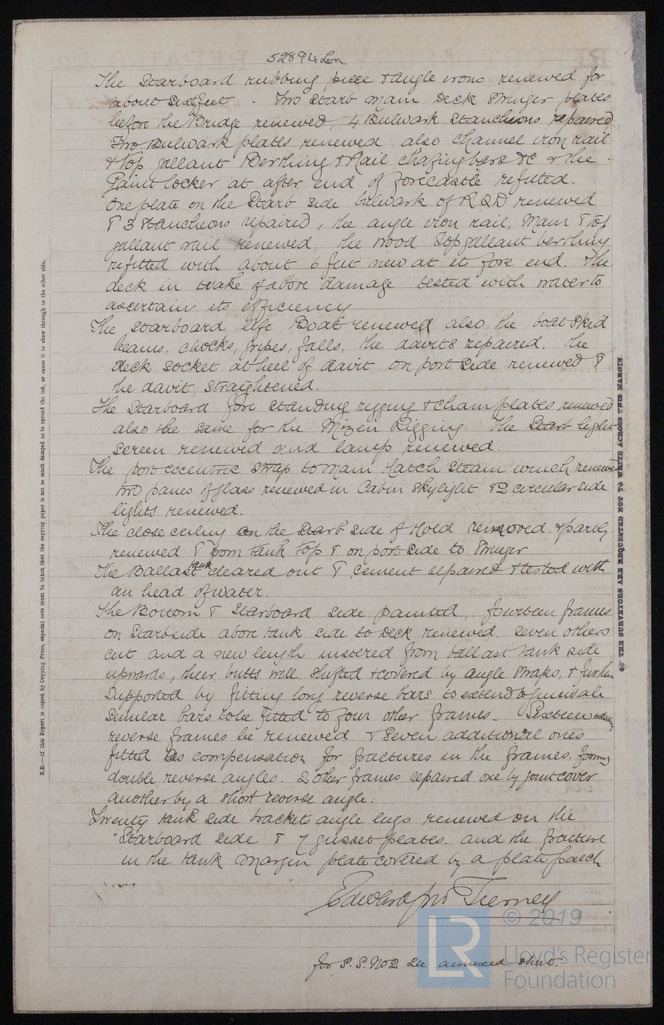 52894 Lon
The Starboard rubbing piece & angle irons renewed for
about feet. Two Starb main deck Stringer plates
before the Bridge renewed, 4 Bulwark Stanchions repaired
Two Bulwark plates renewed, also channel iron rail
& top gallant Berthing & Rail chafing bars &c & the
Paint locker at after end of forecastle refitted.
One plate on the Starb side bulwark of R.Q.D renewed
& 3 Stanchions repaired, the angle iron rail, Main & top
gallant rail renewed, the wood Topgallant berthing
refitted with about 6 feet new at its fore end. The
deck in wake of above damage tested with water to
ascertain its efficiency
The Starboard life Boat renewed also the boat skid
beams, chocks, gripes, falls, the davits repaired. the
deck socket at heel of davit on port side renewed &
the davit straightened.
The Starboard fore standing rigging & chain plates renewed
also the same for the Mizen Rigging. The Starb light
screen renewed and lamp renewed.
The port eccentric strap to main hatch steam winch renewed
two panes of glass renewed in Cabin Skylight & 2 circular side
lights renewed.
The close ceiling on the Starb side of Hold removed & partly
renewed & from tank top & on port side to Stringer
The Ballast tank cleared out & cement repaired & tested with
an head of water.
The Bottom & Starboard side painted, fourteen frames
on Starb side above tank side to deck renewed. Seven others
cut and a new length inserted from ballast tank side
upwards, their butts well shifted & covered by angle straps, & further
supported by fitting long reverse bars to extend to
Similar bars to be fitted to four other frames. Sixteen
reverse frames be renewed & seven additional ones
fitted as compensation for fractures in the frames. forming
double reverse angles. 2 other frames repaired one by joint cover
another by a short reverse angle.
Twenty tank side bracket angle lugs renewed on the
Starboard side & 7 gusset plates. and the fracture
in the tank margin plate covered by a plate patch
Edward Jno Tierney
for S.S. No 2 see annexed sheet.
N.B.—If this Report is copied by Copying Press, especial care must be taken that the copying paper is not so much damped as to spread the ink, or cause it to show through to the other side.
THE SURVEYORS ARE REQUESTED NOT TO WRITE ACROSS THIS MARGIN.
© 2019
LR
Lloyd's Register
Foundation